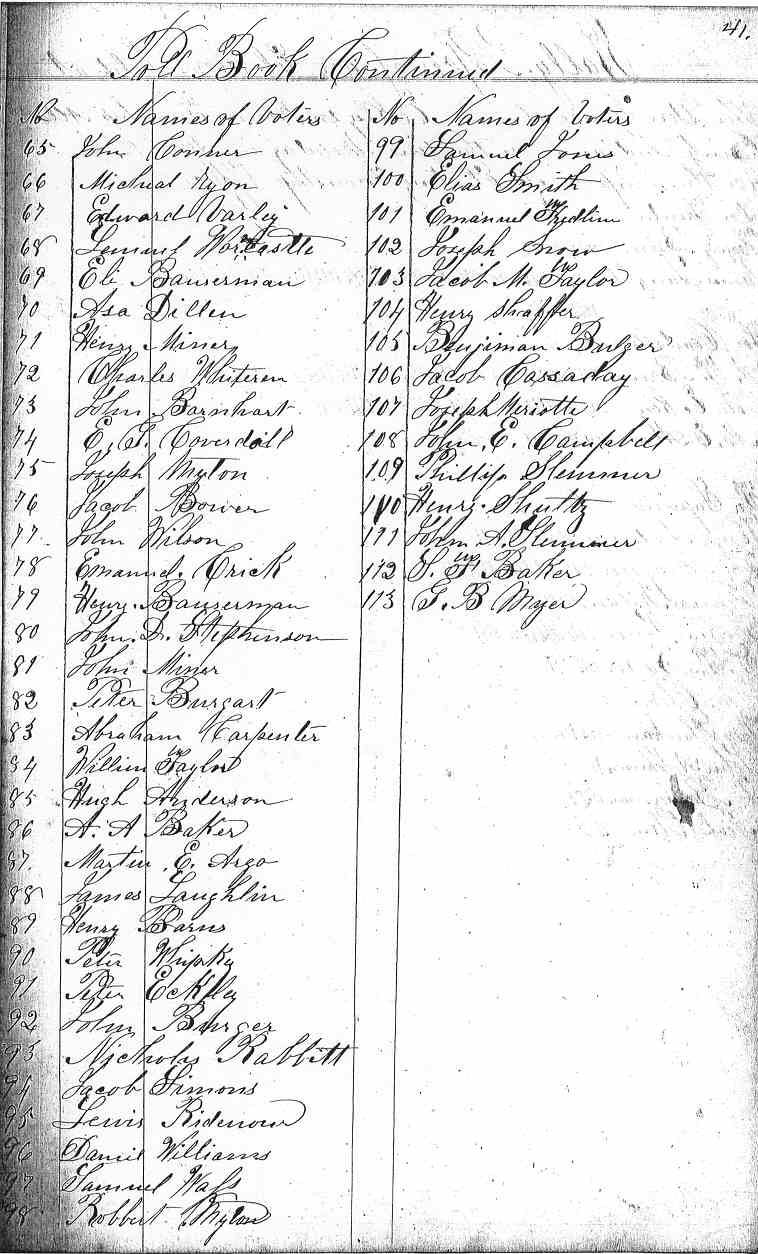 41.
Poll Book Continued
No Names of Voters
65 John Conner
66 Micheal Ryon
67 Edward Varley
68 Lemuel
69 Eli Bauserman
70 Asa Dillen
71 Henry Miner
72 Charles Whiteren
73 John Barnhart
74 E, T. Coverdall
75 Joseph Mylon
76 Jacob Bower
77. John Wilson
78 Emanuel Crick
79 Henry Bauserman
80 John. D. Stephenson
81 John Miner
82 Peter Burgart
83 Abraham Carpenter
84 William Taylor
85 Hugh Anderson
86 A. A Baker
87. Martin E. Argo
88 James Laughlin
89 Henry Barns
90 Peter Whipky
91 Peter Eckley
92 John Burger
93 Nicholas Rabbitt
94 Jacob Simons
95 Lewis Ridenour
96 Daniel Williams
97 Samuel Wass
98 Robbert Mylon
No Names of Voters
99 Samuel Jones
100 Elias Smith
101 Emanuel
102 Joseph Snow
103 Jacob M. Taylor
104 Henry Shaffer
105 Benjiman Balzer
106 Jacob Cassaday
107 Joseph Meriotte
108 John, E. Campbell
109 Phillip Slemmer
110 Henry Shultz
111 John A. Slemmer
112 S. F. Baker
113 G. B Myer